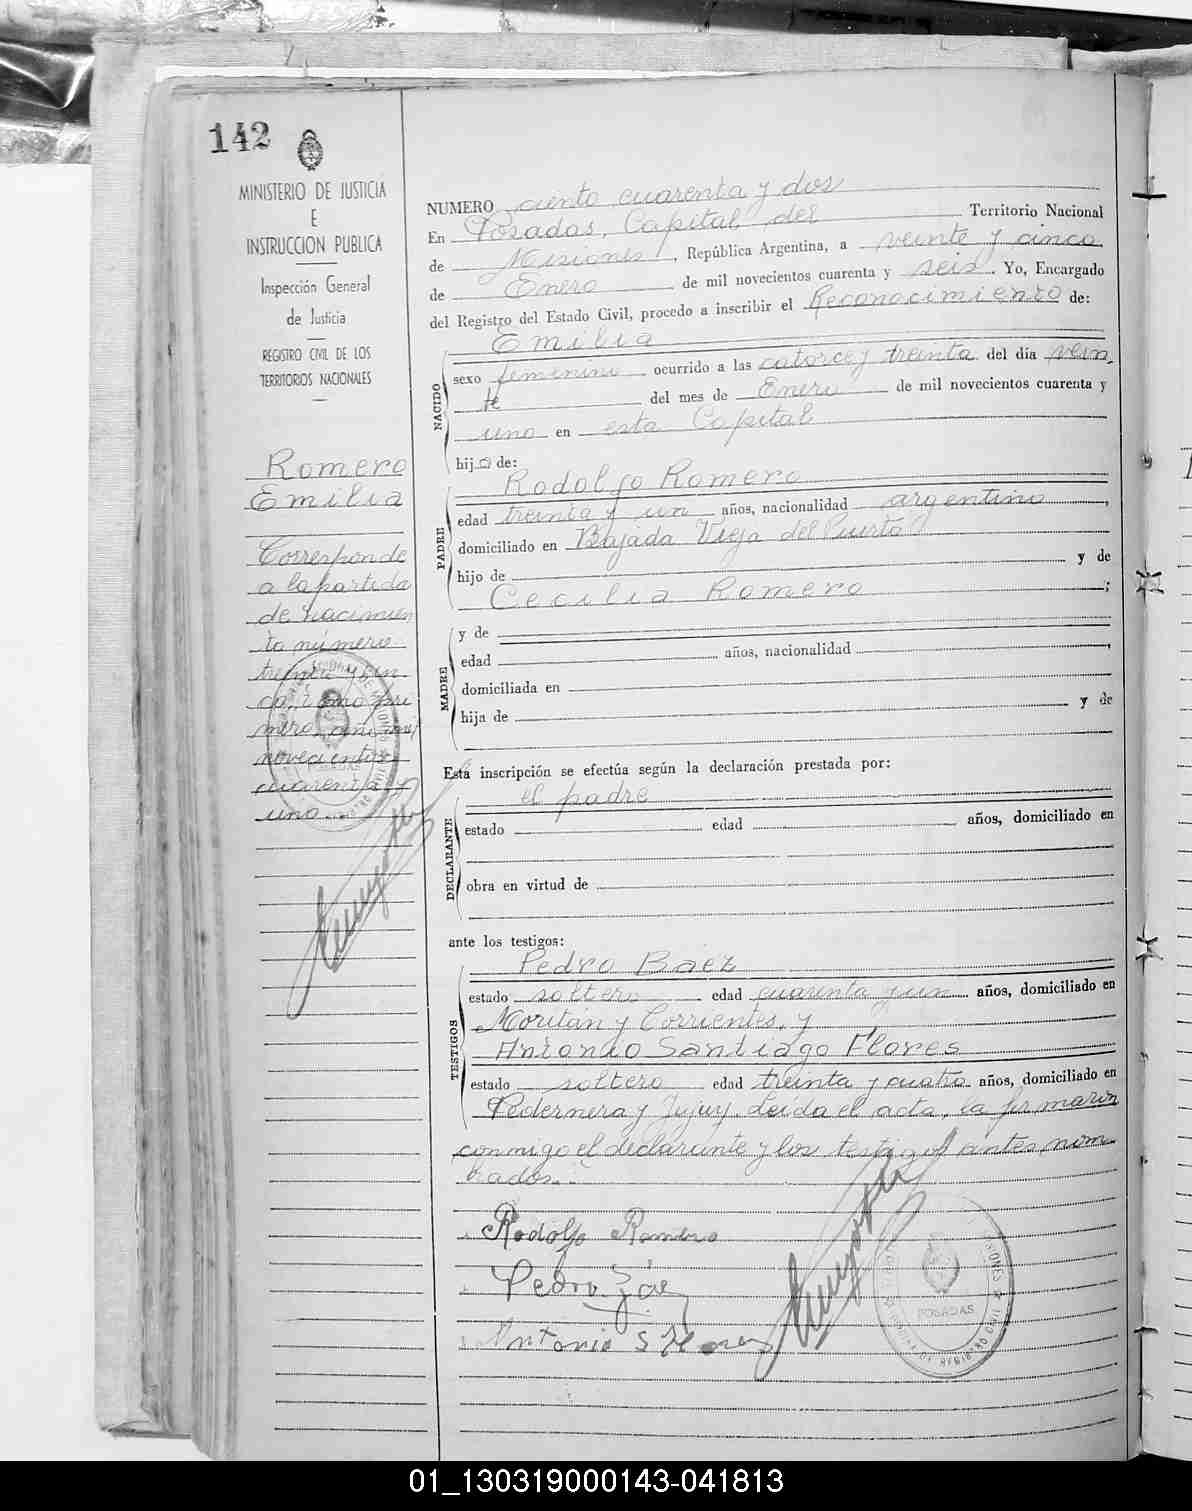 142
MINISTERIO DE JUSTICIA
E
INSTRUCCION PUBLICA
Inspección General
de Justicia
REGISTRO CIVIL DE LOS
TERRITORIOS NACIONALES
Romero
Emilia
Corresponde
a la partida
de nacimien
to número
treinta y cin
co, tomo pri
mero, año mil
novecientos
cuarenta y
uno.
NUMERO ciento cuarenta y dos
En Posadas, Capital del Territorio Nacional
de Misiones, República Argentina, a veinte y cinco
de Enero de mil novecientos cuarenta y seis. Yo, Encargado
del Registro del Estado Civil, procedo a inscribir el Reconocimiento de:
NACIDO
Emilia
sexo femenino ocurrido a las catorce y treinta del día vein
te del mes de Enero de mil novecientos cuarenta y
uno en esta Capital
hija de:
PADRE
Rodolfo Romero
edad treinta y un años, nacionalidad argentino,
domiciliado en Bajada Vieja del Puerto
hijo de y de
Cecilia Romero;
MADRE
y de
edad años, nacionalidad,
domiciliada en
hija de y de
Esta inscripción se efectúa según la declaración prestada por:
DECLARANTE
el padre
estado edad años, domiciliado en
obra en virtud de
ante los testigos:
TESTIGOS
Pedro Báez
estado soltero edad cuarenta y un años, domiciliado en
Moritán y Corrientes, y
Antonio Santiago Flores
estado soltero edad treinta y cuatro años, domiciliado en
Pedernera y Jujuy. Leída el acta, la firmaron
conmigo el declarante y los testigos antes nom
brados.
Rodolfo Romero
Pedro Báez
Antonio S Flores
POSADAS
01_130319000143-041813